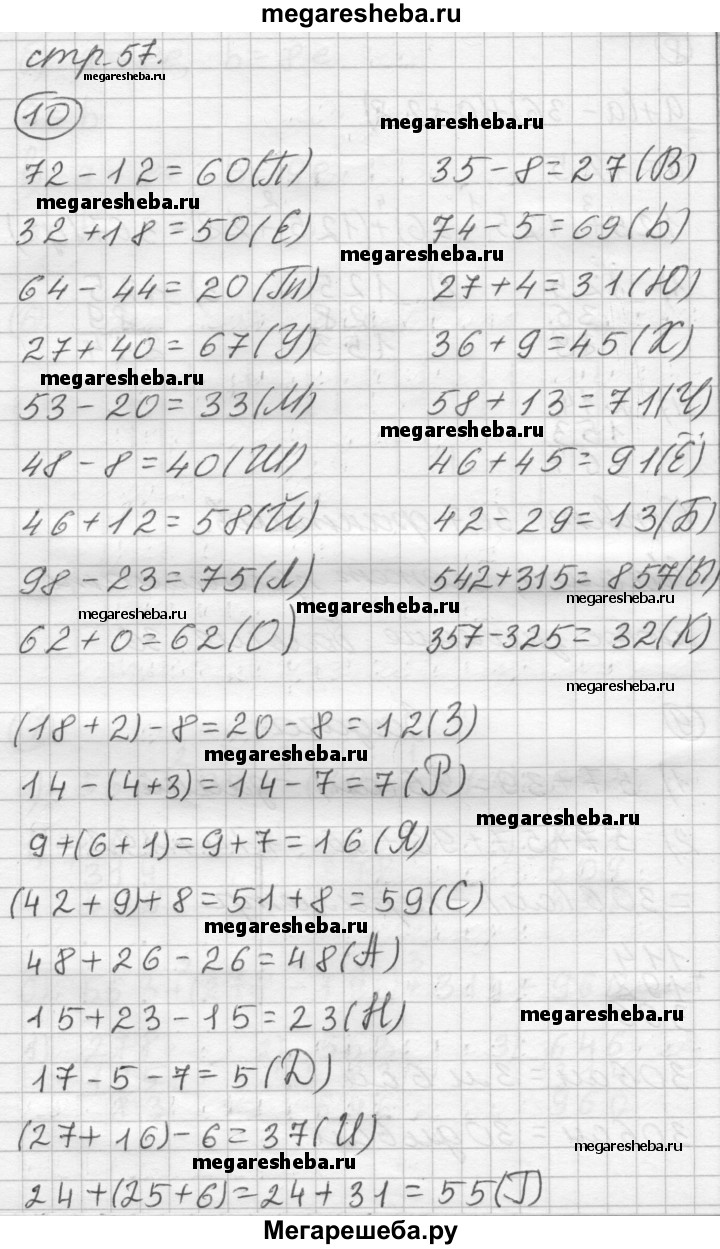 megaresheba.ru
стр. 57.
megaresheba.ru
10
megaresheba.ru
72 - 12 = 60 (П) 35 - 8 = 27 (В)
megaresheba.ru
32 + 18 = 50 (Е) 74 - 5 = 69 (Ь)
megaresheba.ru
64 - 44 = 20 (Т) 27 + 4 = 31 (Ю)
27 + 40 = 67 (У) 36 + 9 = 45 (Х)
megaresheba.ru
53 - 20 = 33 (М) 58 + 13 = 71 (Ч)
megaresheba.ru
48 - 8 = 40 (Ш) 46 + 45 = 91 (Ё)
46 + 12 = 58 (Й) 42 - 29 = 13 (Б)
98 - 23 = 75 (Л) 542 + 315 = 857 (Ы)
megaresheba.ru megaresheba.ru megaresheba.ru
62 + 0 = 62 (О) 357 - 325 = 32 (К)
megaresheba.ru
(18 + 2) - 8 = 20 - 8 = 12 (З)
megaresheba.ru
14 - (4 + 3) = 14 - 7 = 7 (Р)
megaresheba.ru
9 + (6 + 1) = 9 + 7 = 16 (Я)
(42 + 9) + 8 = 51 + 8 = 59 (С)
megaresheba.ru
48 + 26 - 26 = 48 (А)
15 + 23 - 15 = 23 (Н)
megaresheba.ru
17 - 5 - 7 = 5 (Д)
(27 + 16) - 6 = 37 (И)
megaresheba.ru
megaresheba.ru
24 + (25 + 6) = 24 + 31 = 55 (Г)
Мегарешеба.ру